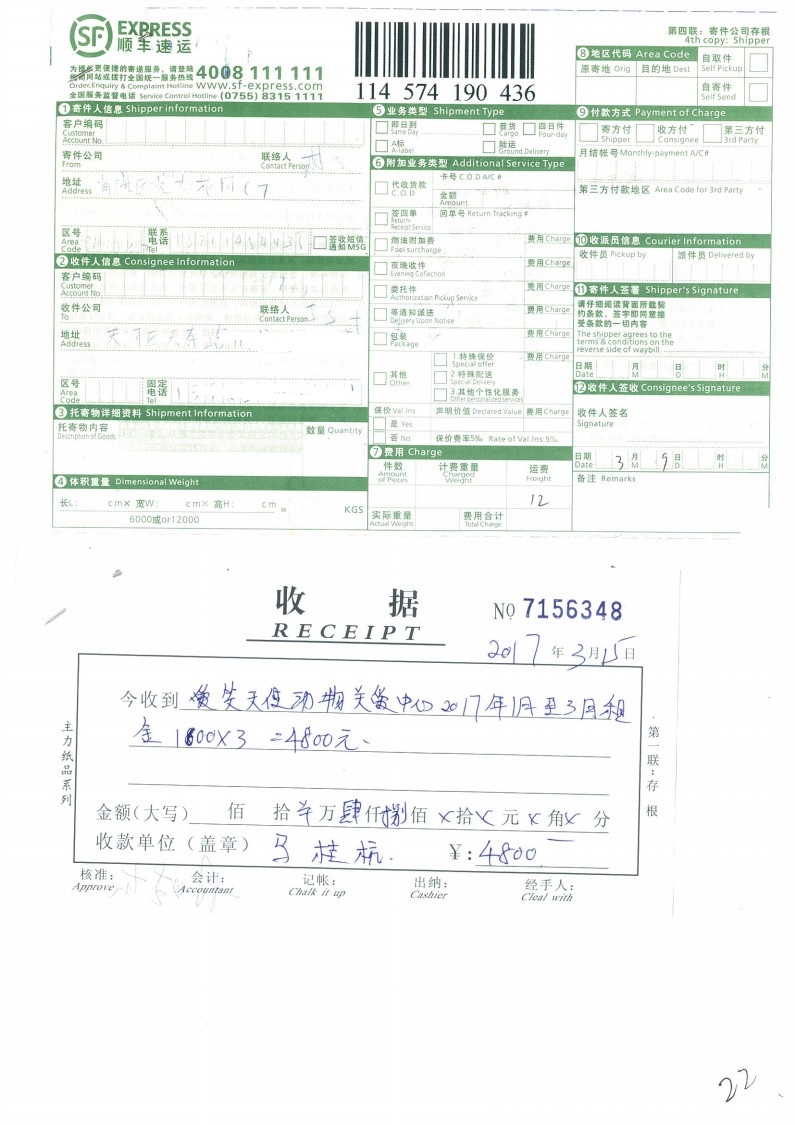 SF EXPRESS
顺丰速运
第四联：寄件公司存根
4th copy: Shipper
为提供更便捷的寄递服务，请登陆
网站或拨打全国统一服务热线 4008 111 111
Order,Enquiry & Complaint Hotline www.sf-express.com
全国服务监督电话 Service Control Hotline (0755) 8315 1111
114 574 190 436
① 寄件人信息 Shipper information
客户编码
Customer
Account No.
寄件公司
From
联络人
Contact Person
地址
Address
区号
Area
Code
联系
电话
Tel
签收短信
通知MSG
② 收件人信息 Consignee Information
客户编码
Customer
Account No.
收件公司
To
联络人
Contact Person
地址
Address
区号
Area
Code
固定
电话
Tel
③ 托寄物详细资料 Shipment Information
托寄物内容
Description of Goods
数量 Quantity
④ 体积重量 Dimensional Weight
长L: cm× 宽W: cm× 高H: cm = KGS
6000或or12000
⑤ 业务类型 Shipment Type
即日到
Same Day
普货
Cargo
四日件
Four-day
A标
A-label
陆运
Ground Delivery
⑥ 附加业务类型 Additional Service Type
代收货款
C.O.D
卡号 C.O.D A/C #
金额
Amount
签回单
Return-
Receipt Service
回单号 Return Tracking #
燃油附加费
Fuel surcharge
费用 Charge
夜晚收件
Evening Collection
费用 Charge
委托件
Authorization Pickup Service
费用 Charge
等通知派送
Delivery Upon Notice
费用 Charge
包装
Package
费用 Charge
其他
Other
1.特殊保价
Special offer
费用 Charge
2.特殊配送
Special Delivery
3.其他个性化服务
Other personalized services
保价 Val.Ins 声明价值 Declared Value 费用 Charge
是 Yes
否 No 保价费率5‰ Rate of Val Ins:5‰
⑦ 费用 Charge
件数
Amount
of Pieces
计费重量
Charged
Weight
运费
Freight
12
实际重量
Actual Weight
费用合计
Total Charge
⑧ 地区代码 Area Code
原寄地 Orig 目的地 Dest
自取件
Self Pickup
自寄件
Self Send
⑨ 付款方式 Payment of Charge
寄方付
Shipper
收方付
Consignee
第三方付
3rd Party
月结帐号 Monthly-payment A/C#
第三方付款地区 Area Code for 3rd Party
⑩ 收派员信息 Courier Information
收件员 Pickup by 派件员 Delivered by
⑪ 寄件人签署 Shipper's Signature
请仔细阅读背面所载契
约条款，签字即同意接
受条款的一切内容
The shipper agrees to the
terms & conditions on the
reverse side of waybill
日期
Date
月
M
日
D
时
H
分
M
⑫ 收件人签收 Consignee's Signature
收件人签名
Signature
日期
Date
3 月
M
9 日
D
时
H
分
M
备注 Remarks
收 据
RECEIPT
№ 7156348
2017 年 3 月 15 日
今收到 天使动物关爱中心 2017年1月至3月租
金 1600×3 =4800元.
金额(大写) 佰 拾 万 肆 仟 捌 佰 × 拾 × 元 × 角 × 分
收款单位（盖章） 马桂杭. ¥: 4800
主力纸品系列
第一联：存根
核准：
Approve
会计：
Accountant
记帐：
Chalk it up
出纳：
Cashier
经手人：
Cleal with
22